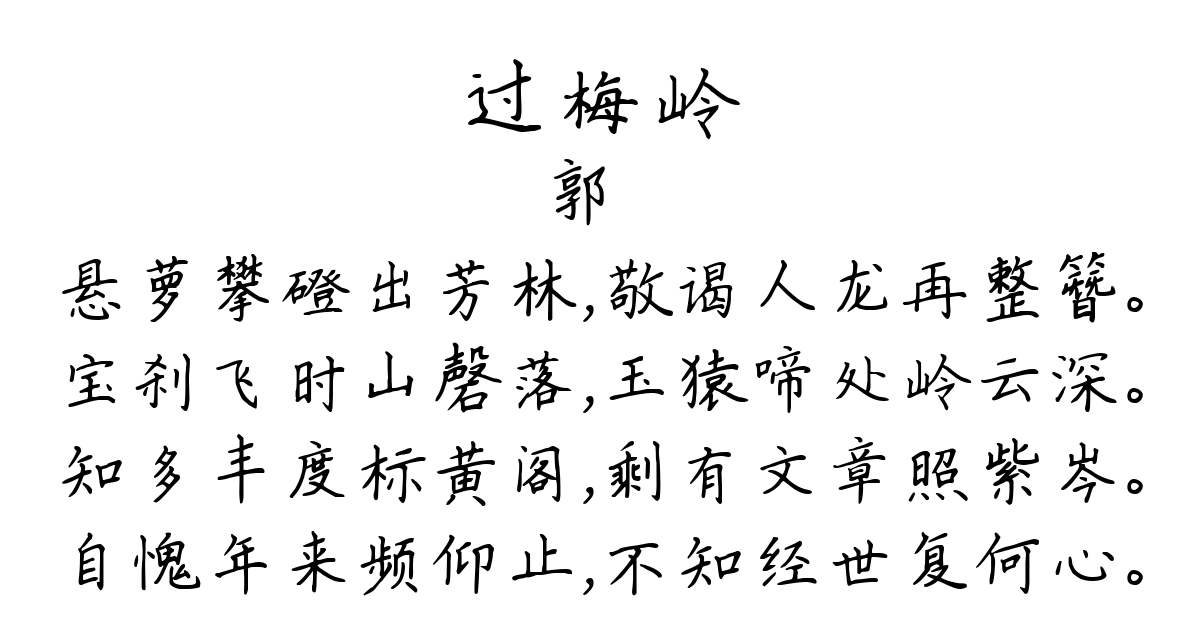 过梅岭
郭
悬萝攀磴出芳林,敬谒人龙再整簪。
宝刹飞时山磬落,玉猿啼处岭云深。
知多丰度标黄阁,剩有文章照紫岑。
自愧年来频仰止,不知经世复何心。